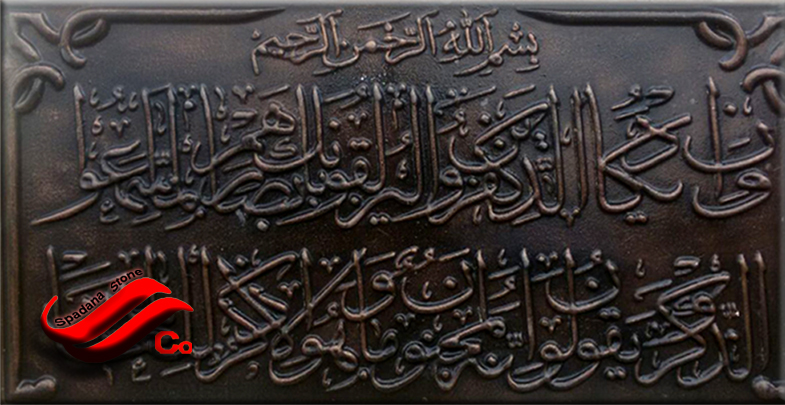 بِسْمِ ٱللَّهِ ٱلرَّحْمَنِ ٱلرَّحِيمِ
وَإِن يَكَادُ الَّذِينَ كَفَرُوا لَيُزْلِقُونَكَ بِأَبْصَارِهِمْ لَمَّا سَمِعُوا
الذِّكْرَ وَيَقُولُونَ إِنَّهُ لَمَجْنُونٌ وَمَا هُوَ إِلَّا ذِكْرٌ
Spadana stone
Co